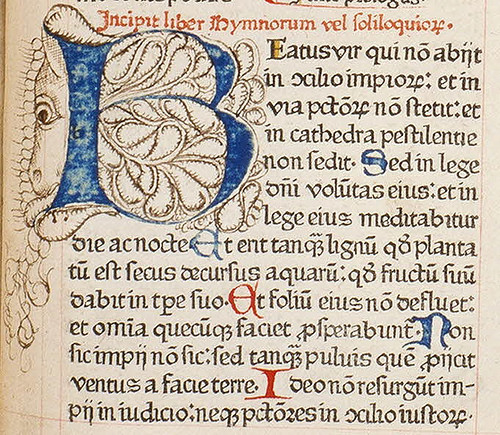 Incipit liber Hymnorum vel soliloquioꝝ.
Beatus vir qui nō abijt
in ↄcilio impioꝝ: et in
via pctōꝝ nō stetit: et
in cathedra pestilentie
non sedit. Sed in lege
dn̄i volūtas eius: et in
lege eius meditabitur
die ac nocte Et erit tanqȝ lignū qd̄ planta
tū est secus decursus aquarū: qd̄ fructū suū
dabit in tp̄e suo. Et foliū eius nō defluet:
et om̄ia quecūqȝ faciet ꝓsperabunt. Non
sic impij nō sic: sed tanqȝ puluis quē ꝓijcit
ventus a facie terre. Ideo nō resurgūt im-
pij in iudicio: neqȝ pctōres in ↄcilio iustoꝝ.